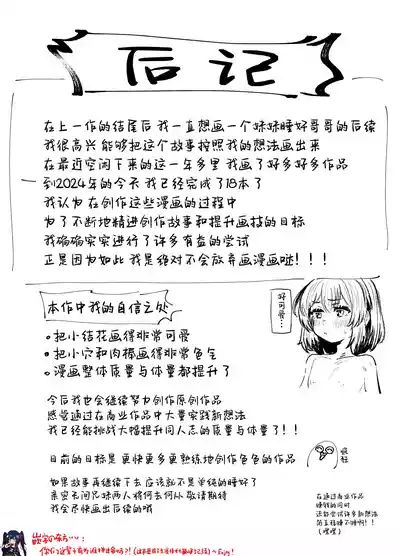 后记
在上一作的结尾后 我一直想画一个妹妹睡好哥哥的后续
我很高兴 能够把这个故事按照我的想法画出来
在最近空闲下来的这一年多里 我画了好多好多作品
到2024年的今天 我已经完成了18本了
我认为 在创作这些漫画的过程中
为了不断地精进创作故事和提升画技的目标
我确确实实进行了许多有益的尝试
正是因为如此 我是绝对不会放弃画漫画哒!!!
本作中我的自信之处
好可爱…
•把小结花画得非常可爱
•把小穴和肉棒画得非常色气
•漫画整体质量与体量都提升了
今后我也会继续努力创作原创作品
感觉通过在商业作品中大量实践新想法
我已经能挑战大幅提升同人志的质量与体量了!!
疯狂
目前的目标是 更快更多更熟练地创作色色的作品
如果故事再继续下去 应该就不是单纯的睡好了
亲密无间兄妹两人将何去何从 敬请期待
我会尽快画出后续的哦
在通过商业作品
赚钱的同时
还能尝试许多新想法
简直稳赚不赔啊!!
(嘿嘿)